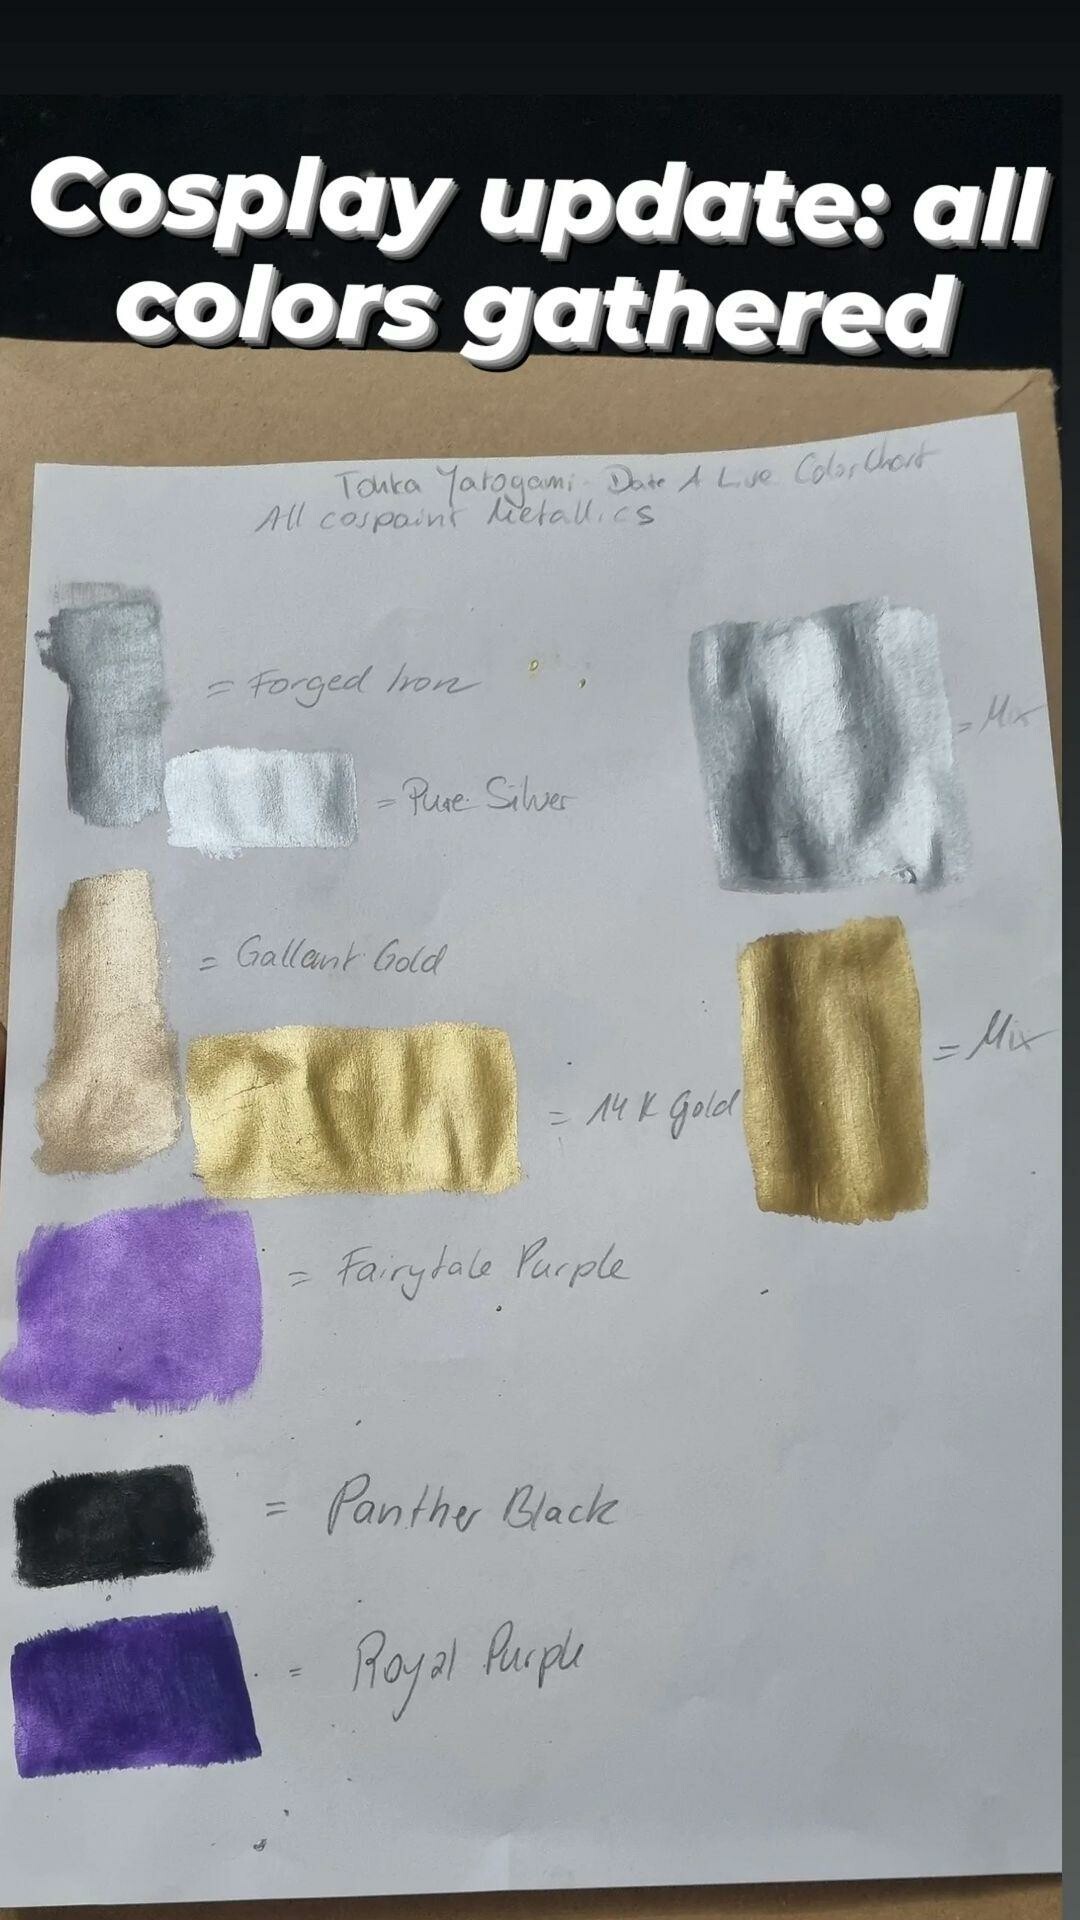 Cosplay update: all
colors gathered
Tohka Yatogami - Date A Live ColorChart
All cospaint Metallics
= Forged Iron
= Mix
= Pure Silver
= Gallant Gold
= Mix
= 14 K Gold
= Fairytale Purple
= Panther Black
= Royal Purple